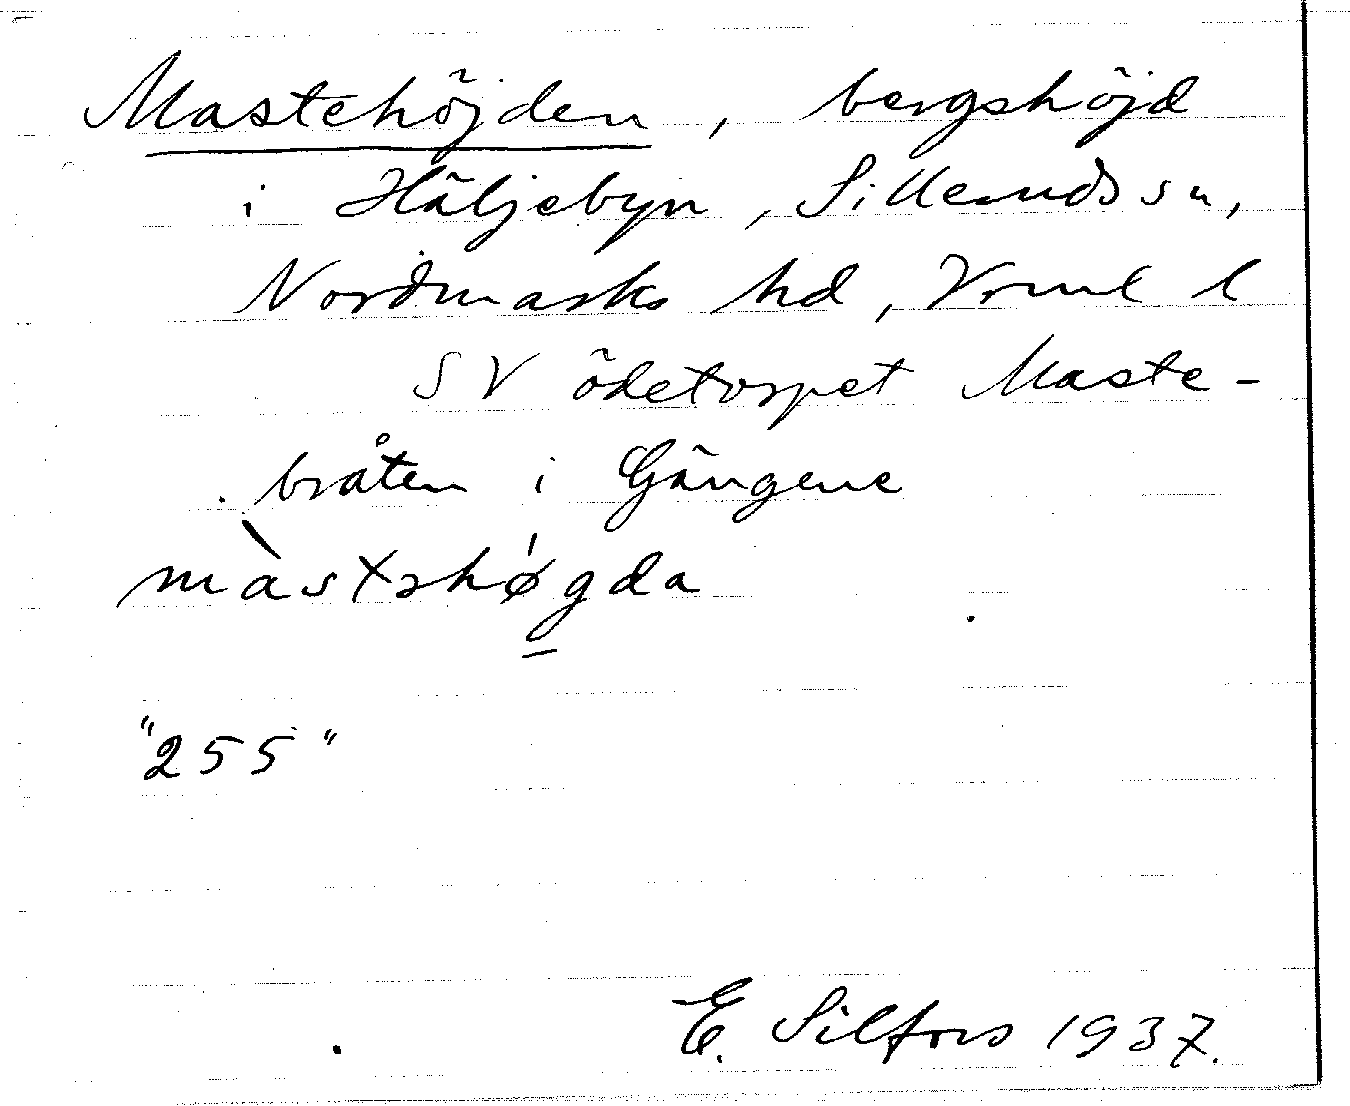 Mastehöjden, bergshöjd
i Häljebyn, Silleruds sn,
Nordmarks hd, Vrml l
SV ödetorpet Maste-
bråten i Gängene
màstəhø̀gda
"255"
E. Silfors 1937.